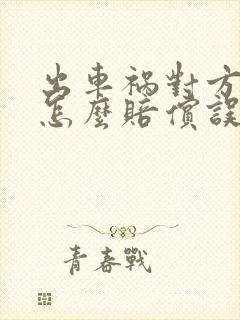 出車禍對方
怎麼賠償誤
青春戰